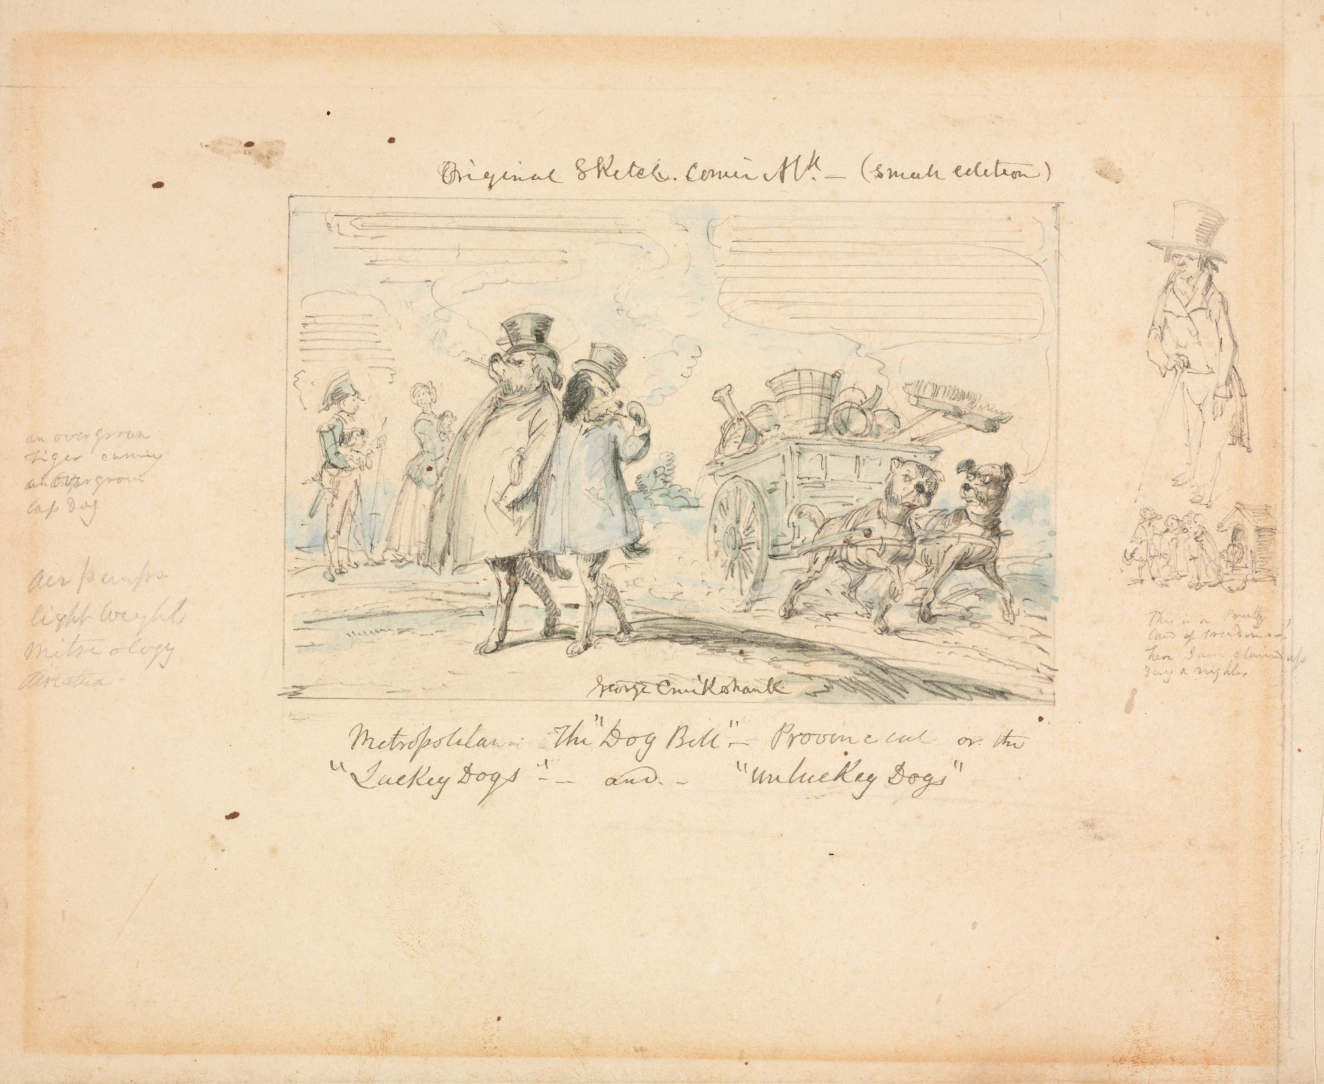 Original Sketch. Comic Alk. — (small edition)
an overgrown
tiger carrying
an overgrown
lap dog
air pumps
light weights
Metreology
George Cruikshank
This is a
land of
here I am
day & night.
Metropolitan — The "Dog Bill" — Provincial or the
"Luckey Dogs" — and — "unluckey Dogs"